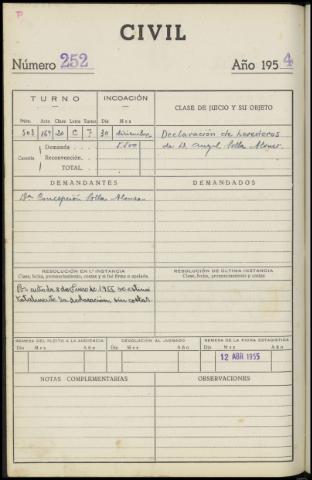 P
CIVIL
Número 252
Año 1954
TURNO
INCOACIÓN
CLASE DE JUICIO Y SU OBJETO
Núm. Arts. Clase Letra Turno Día Mes
503 164 20 C 7 30 diciembre
Declaración de herederos
de D. Angel Solla Alonso.
Cuantía
Demanda 5.500
Reconvención.
TOTAL
DEMANDANTES
DEMANDADOS
Dña Concepción Solla Alonso
RESOLUCIÓN EN 1.ª INSTANCIA
Clase, fecha, pronunciamiento, costas y si fué firme o apelada.
RESOLUCIÓN DE ÚLTIMA INSTANCIA
Clase, fecha, pronunciamiento y costas.
Por auto de 8 de Enero de 1955 se estimó
totalmente la declaración sin costas.
REMESA DEL PLEITO A LA AUDIENCIA
DEVOLUCIÓN AL JUZGADO
REMESA DE LA FICHA ESTADÍSTICA
Día Mes Año
Día Mes Año
Día Mes Año
12 ABR 1955
NOTAS COMPLEMENTARIAS
OBSERVACIONES